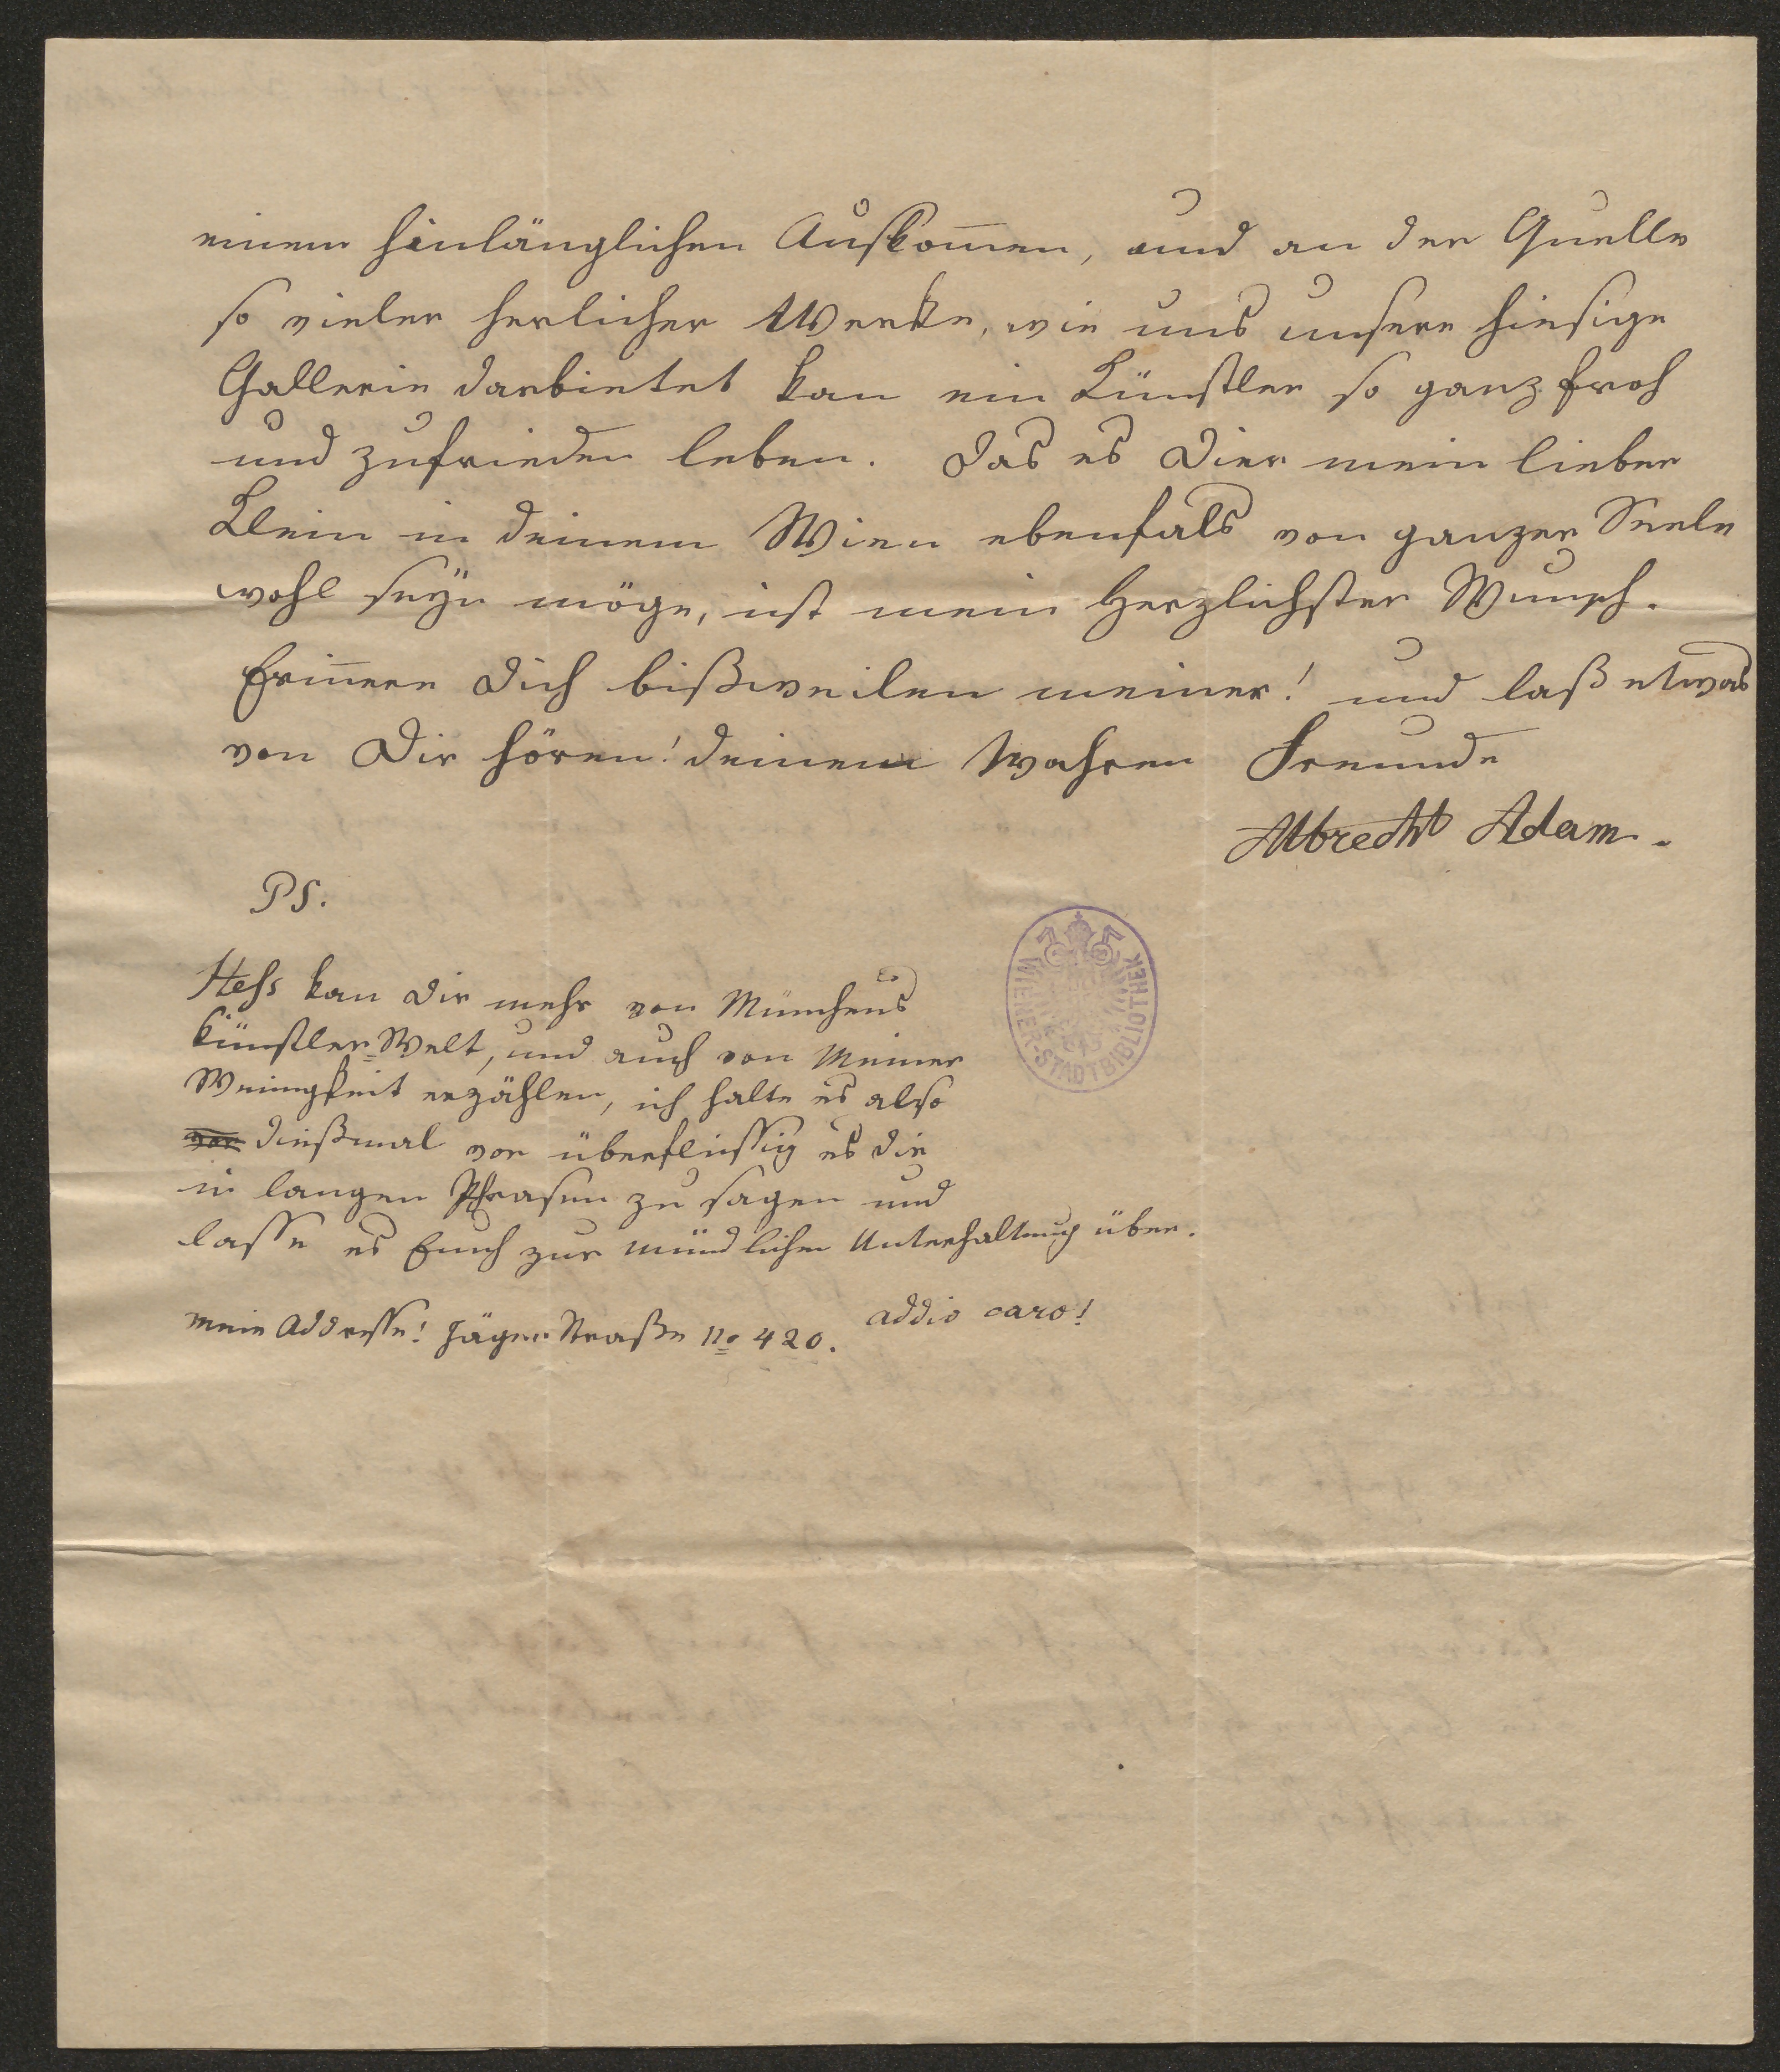 einem hinlänglichen Auskom̄en, und an der Quelle
so vieler herlicher Werke, wie uns unsere hiesige
Gallerie darbietet kan ein Künstler so ganz froh
und zufrieden leben. Das es Dier mein lieber
Klein in deinem Wien ebenfals von ganzer Seele
wohl seÿn möge, ist mein Herzlichster Wunsch.
Erin̄ere Dich bißweilen meiner! und laß etwas
von Dir hören! deinem Wahren Freunde
Albrecht Adam.
PS.
Hess kan Dir mehr von Münchens
Künstler=Welt, und auch von Meiner
Wenigkeit erzählen, ich halte es also
vor dießmal vor überflüssig es dir
in langen Phrasen zu sagen und
lasse es Euch zur mündlichen Unterhaltung über.
addio caro!
mein Addresse! Jäger Straße No 420.
WIENER-STADTBIBLIOTHEK